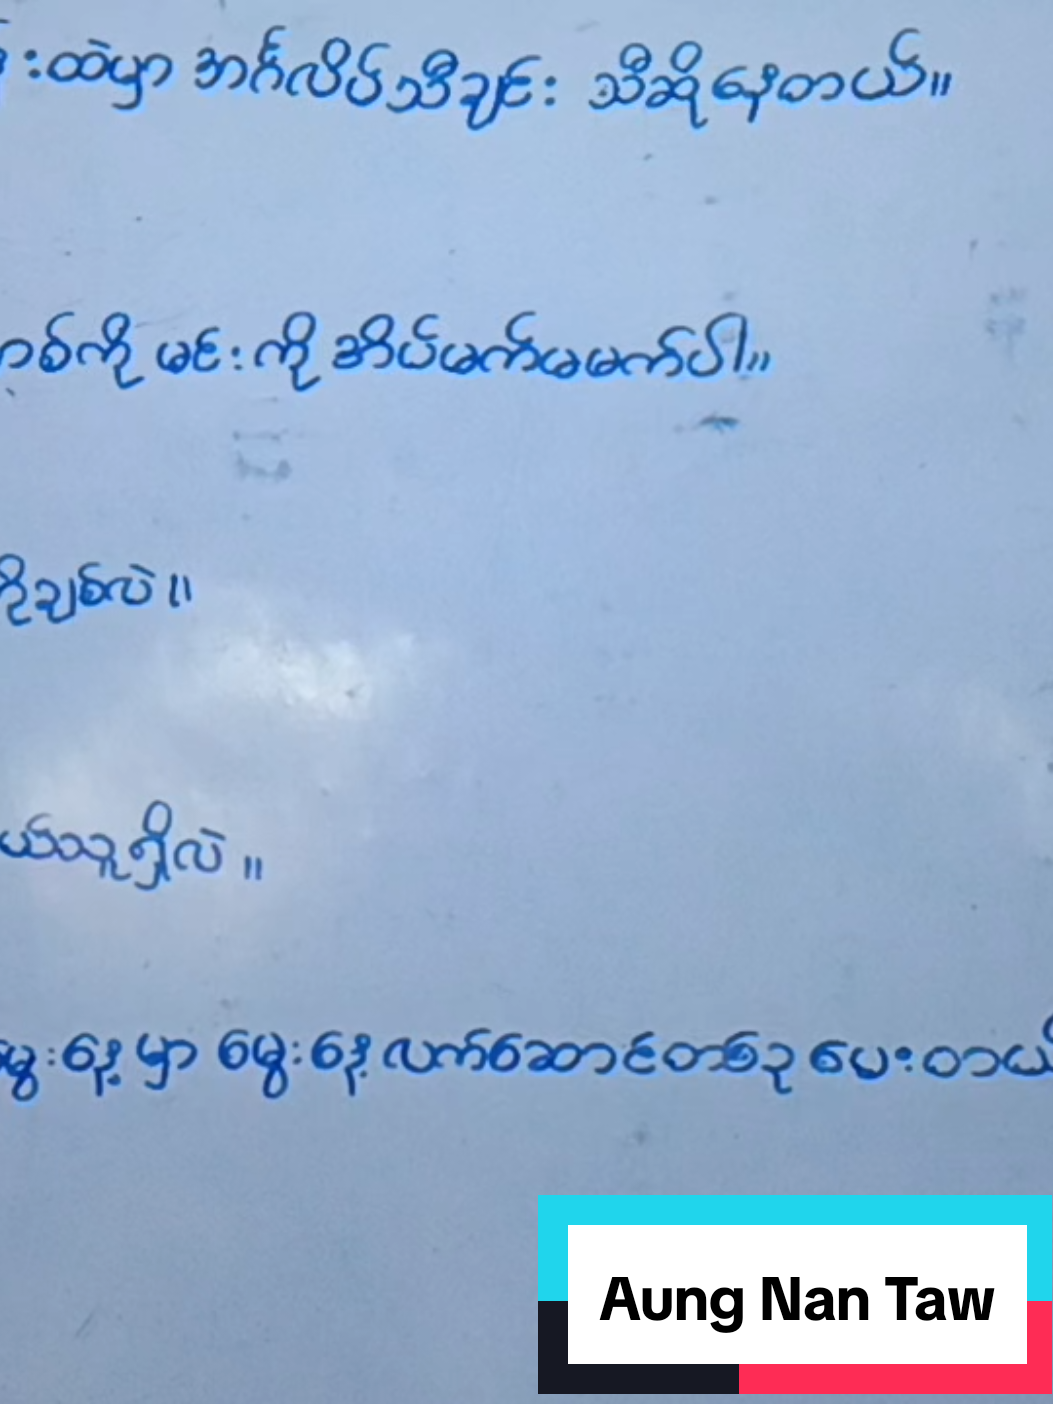 း ထဲမှာ အင်္ဂလိပ်သီချင်း သီဆိုနေတယ်။
တစ်ကို မင်းကို အိပ်မက်မမက်ပါ။
ကိုချစ်လဲ။
ယ်သူရှိလဲ။
မွေးနေ့မှာ မွေးနေ့လက်ဆောင်တစ်ခု ပေးတယ်
Aung Nan Taw